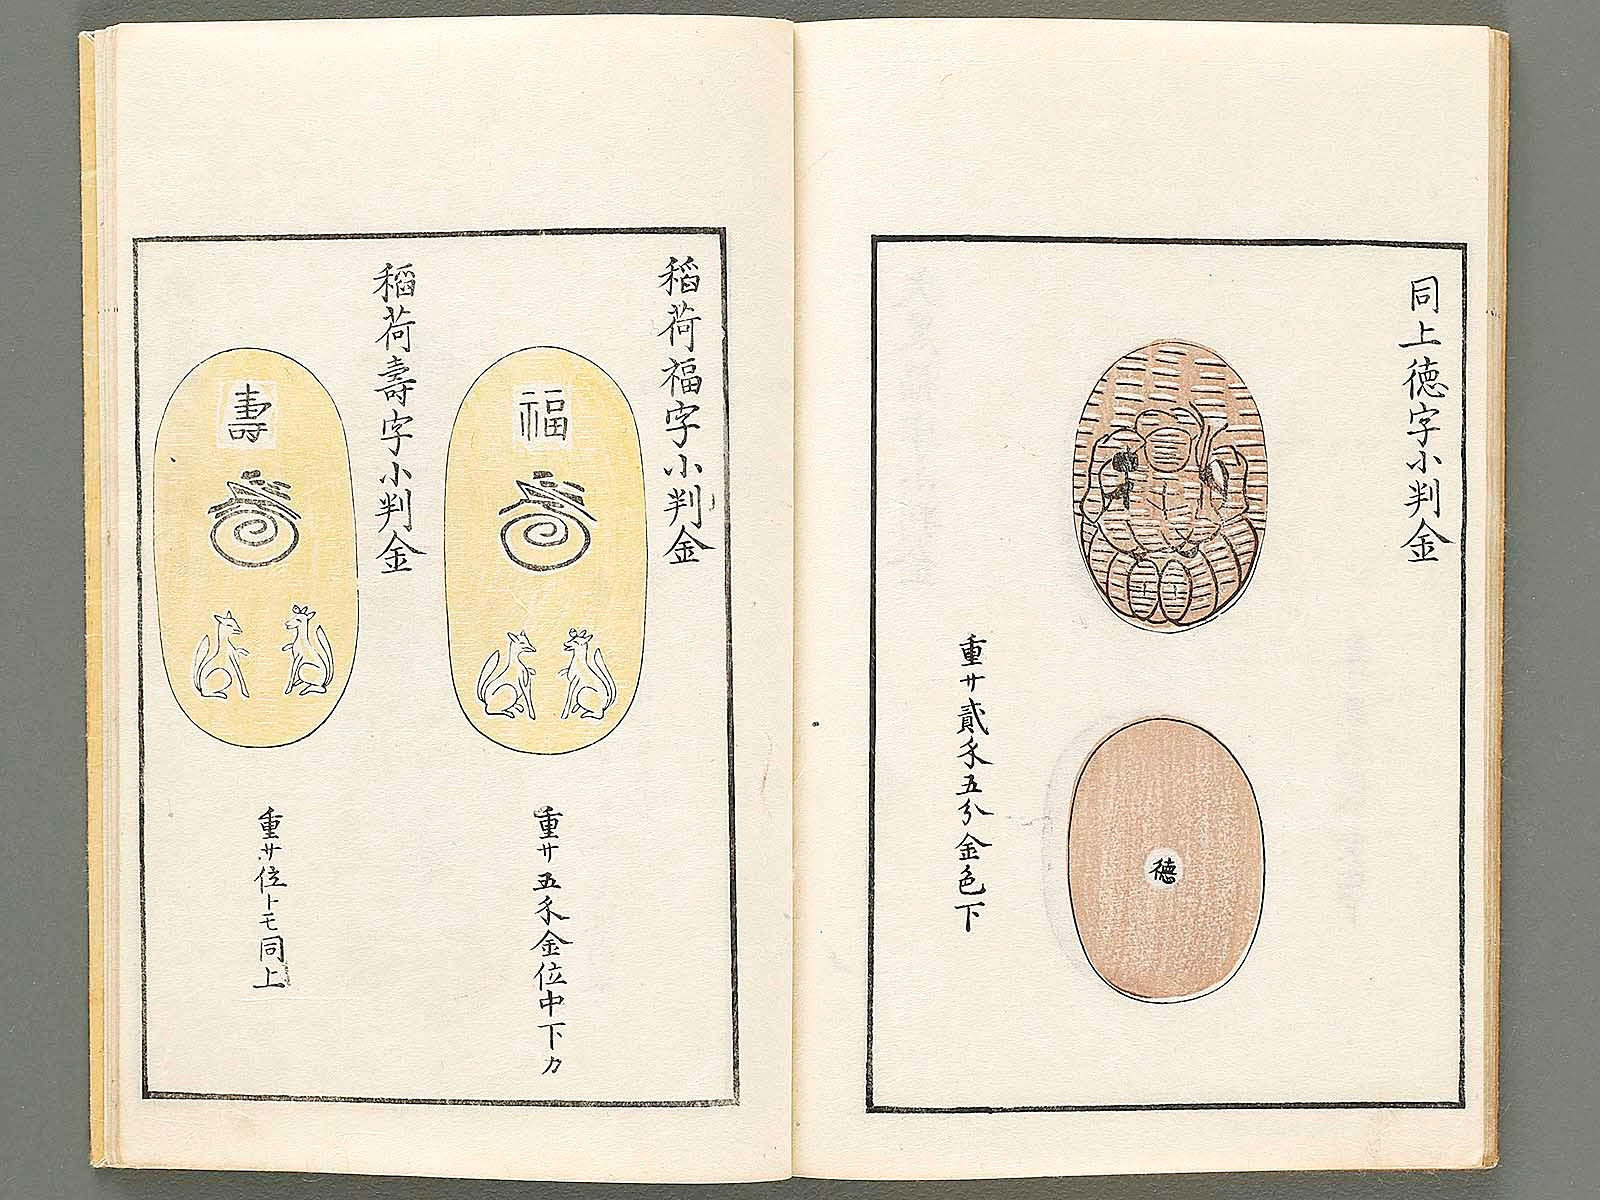 同上徳字小判金
徳
重廿貳匁五分金色下
稲荷福字小判金
福
重廿五匁金位中下カ
稲荷壽字小判金
壽
重廿位トモ同上